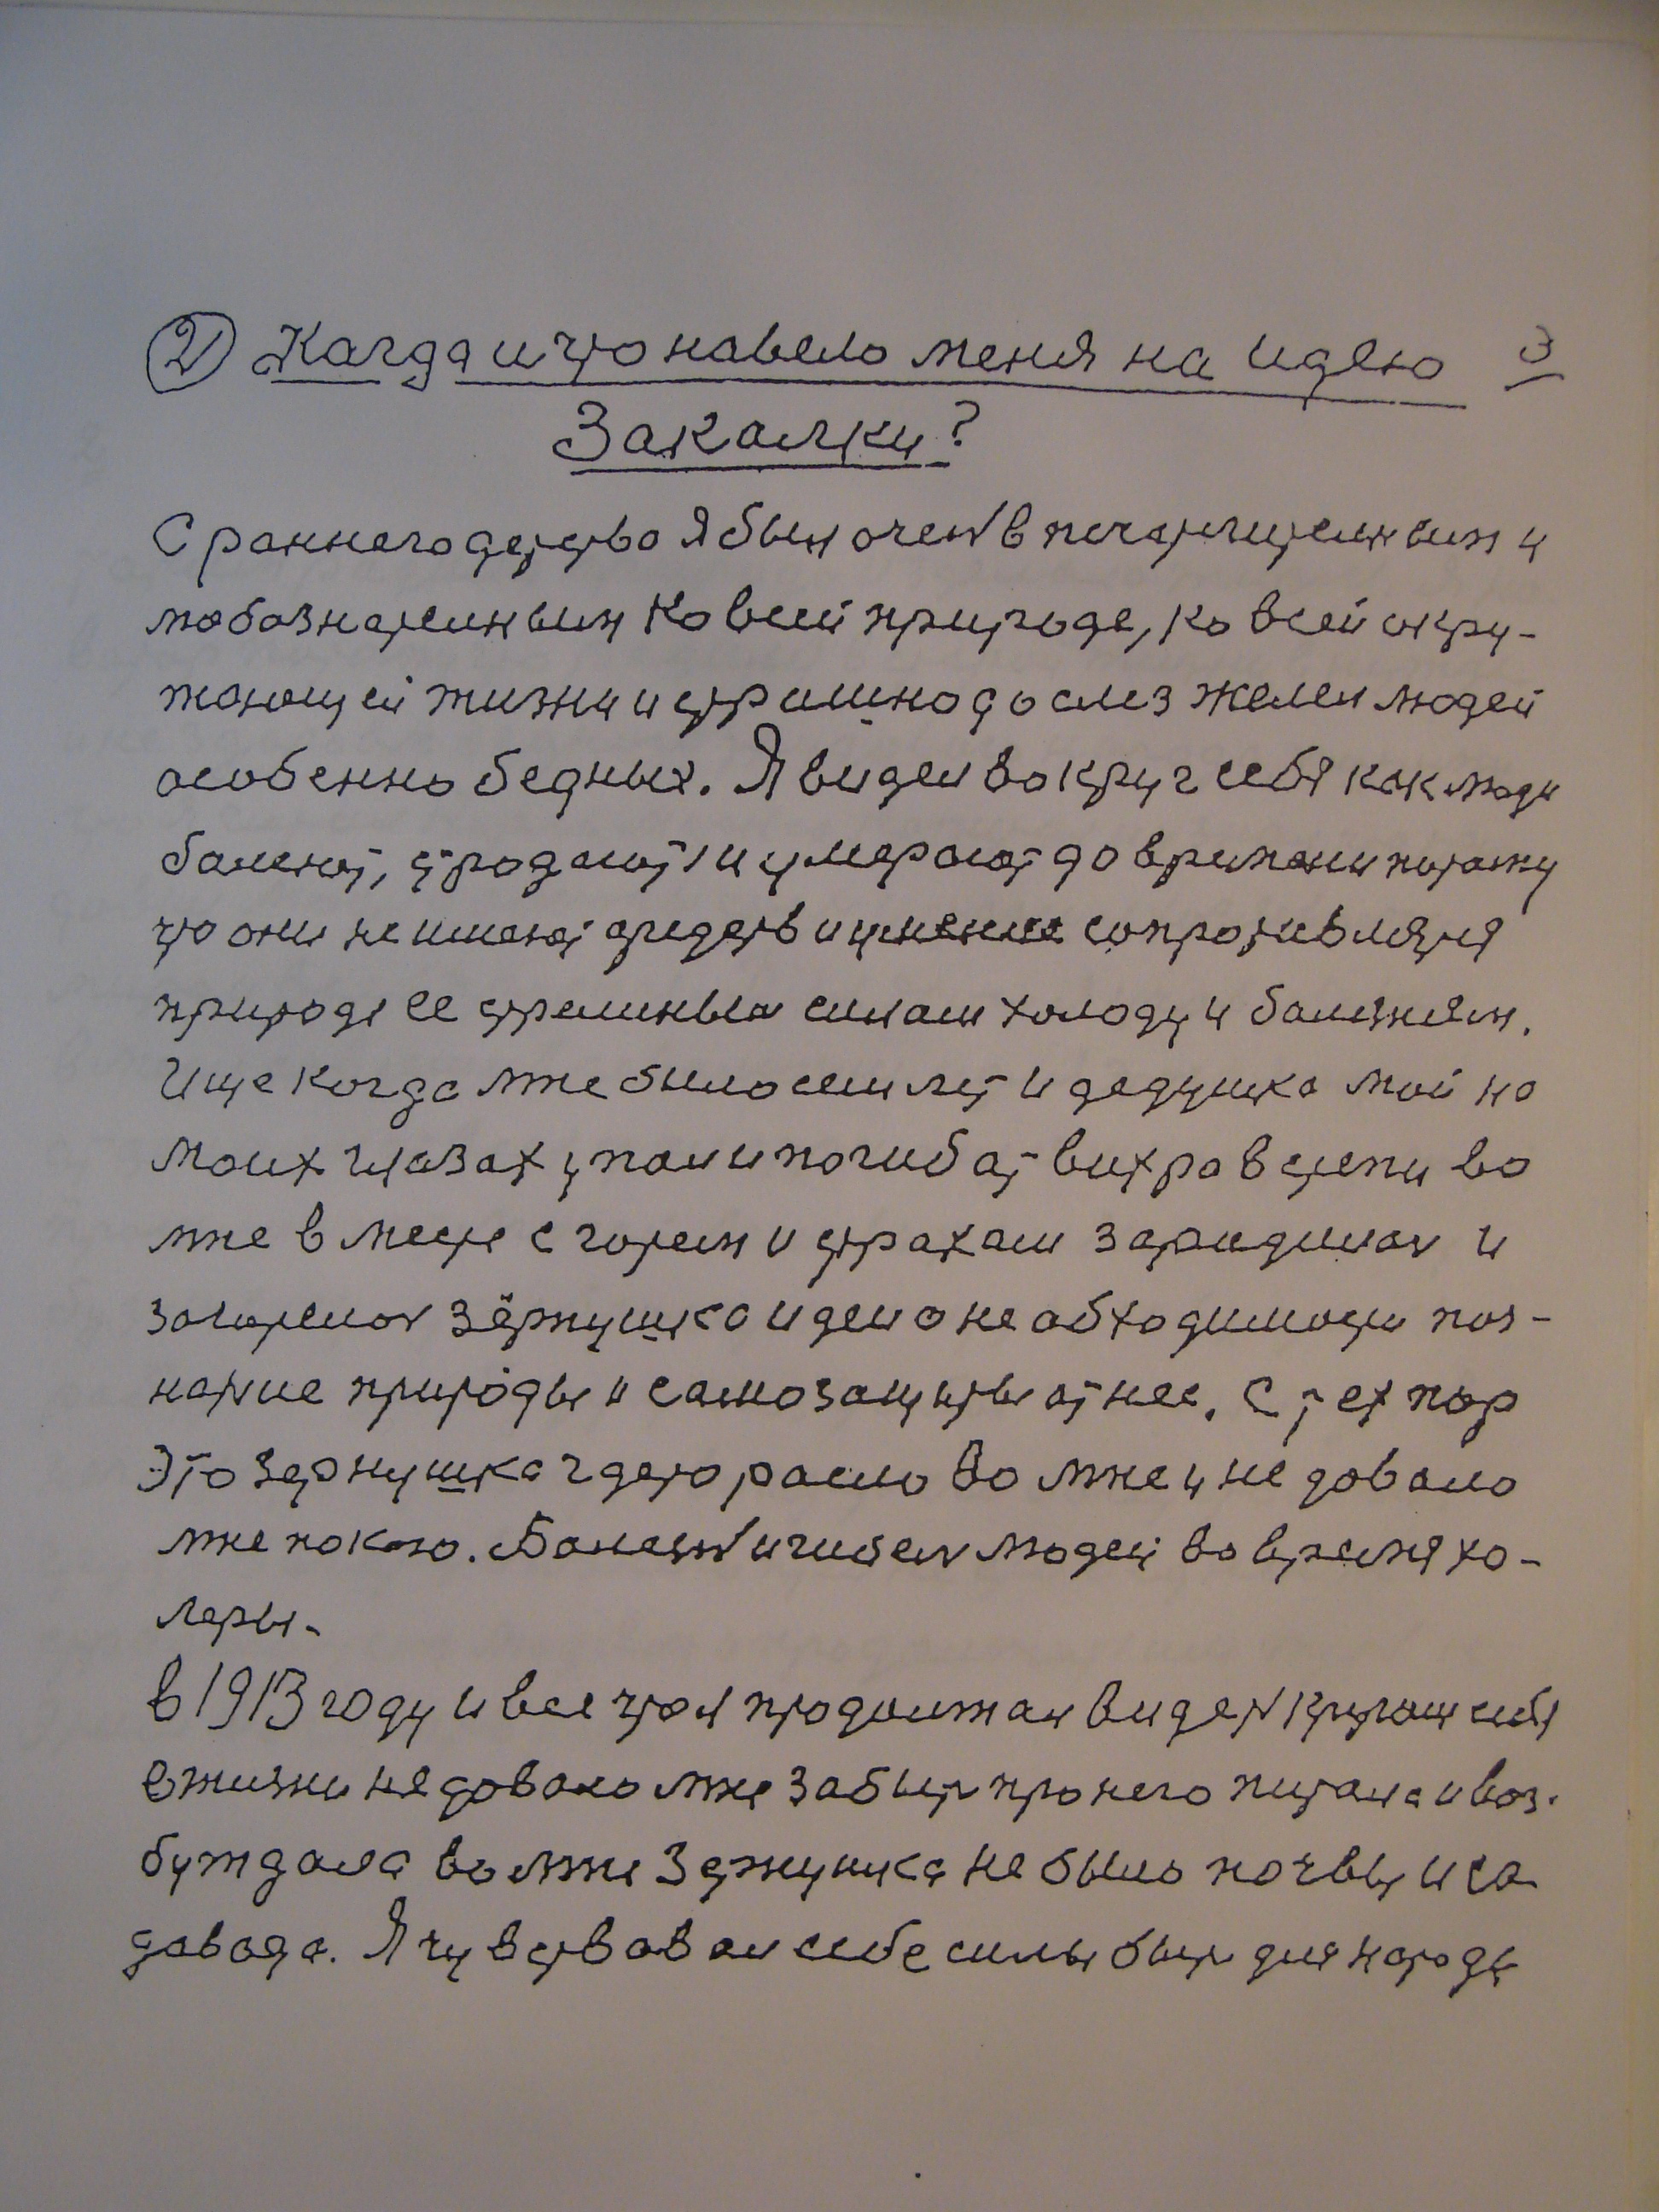 ② Кагда и что навело меня на идею 3
Закалки?
С раннего детство я был очен впечатлительным и
любазнательным ко всей природе, ко всей окру-
жающей жизни и страшно до слез желел людей
особенно бедных. Я видел вокруг себя как люди
балеют, страдают и умерают до времени потаму
что они не имеют средств и умение сопротивлятя
природе ее страшным силам холоду и балезням.
Ище когда мне было сем лет и дедушка мой на
моих глазах упал и погиб от вихра в степи во
мне вместе с горем и страхам зародилас и
загорелас зёрнушка идеи о не обходимости поз-
нание природы и самозащиты от нее. С тех пор
Это зернушка г дето расло во мне и не довало
мне покою. Болезн и гибел людей во время хо-
леры.
В 1913 году и все что я продолжал видет кругом себя
в жизни не довало мне забыт про него питала и воз-
буждала во мне зернушка не было почвы и са
давода. Я чувствовал себе силы быт для народу